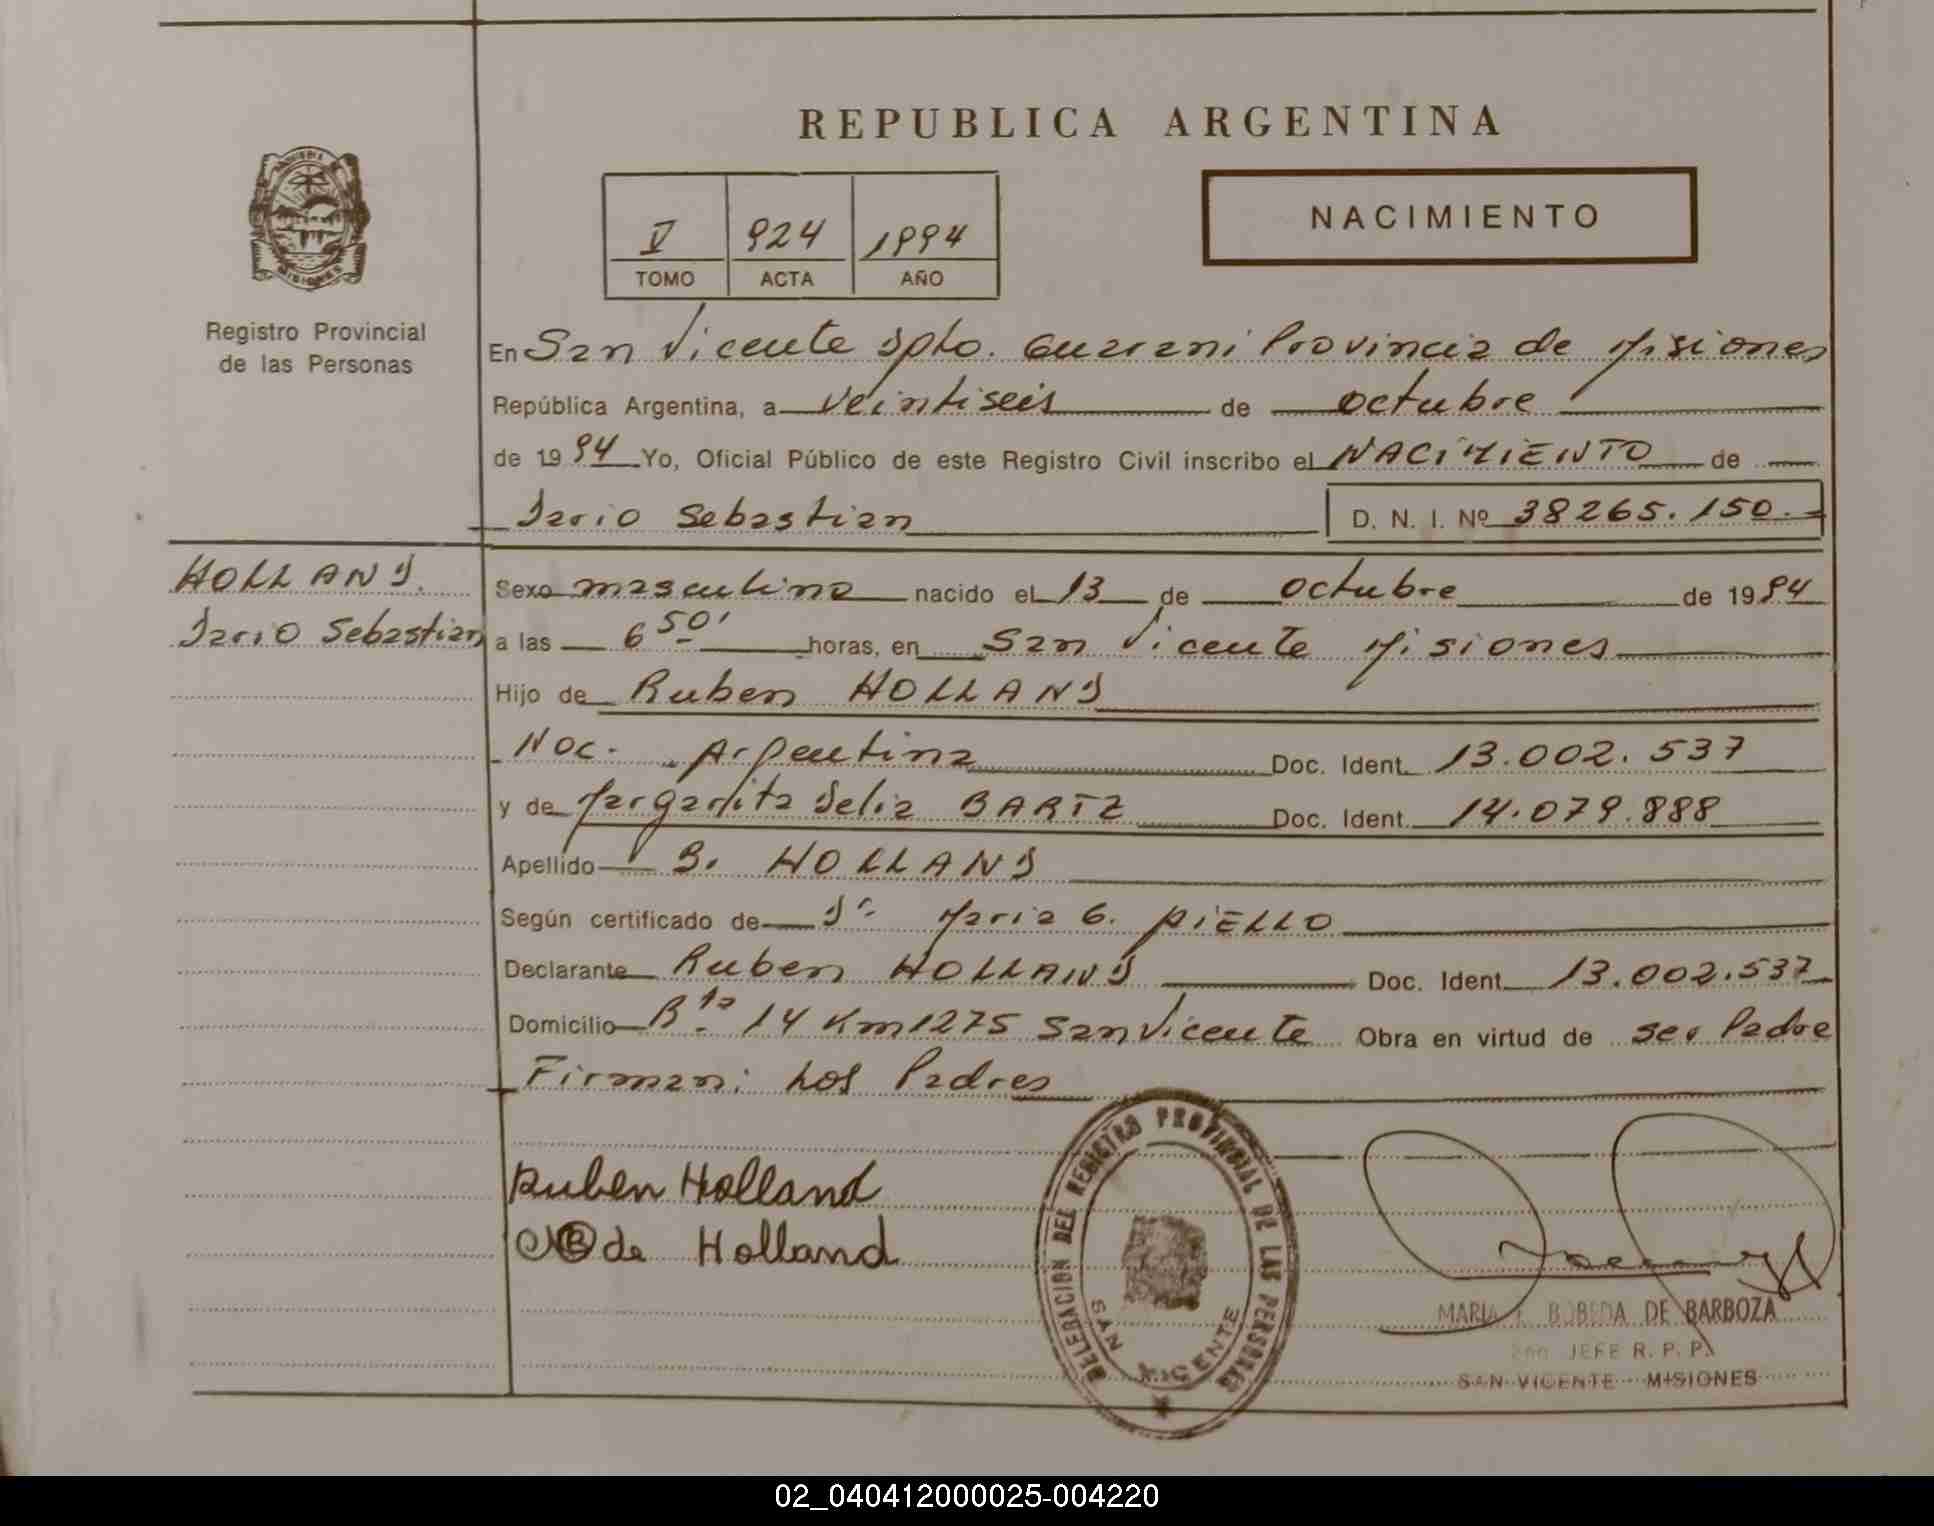 REPUBLICA ARGENTINA
V 924 1994
TOMO ACTA AÑO
NACIMIENTO
MISIONES
Registro Provincial
de las Personas
En San Vicente Dpto. Guarani Provincia de Misiones
República Argentina, a veintiseis de octubre
de 1994 Yo, Oficial Público de este Registro Civil inscribo el NACIMIENTO de
Dario Sebastian D. N. I. Nº 38265.150.-
HOLLAND.
Dario Sebastian
Sexo masculino nacido el 13 de octubre de 1994
a las 6 50' horas, en San Vicente Misiones
Hijo de Ruben HOLLAND
Nac. Argentina Doc. Ident. 13.002.537
y de Margarita Delia BARTZ Doc. Ident. 14.079.888
Apellido HOLLAND
Según certificado de Dr. Maria G. PIELLO
Declarante Ruben HOLLAND Doc. Ident. 13.002.537
Domicilio 14 Km 1275 San Vicente Obra en virtud de ser Padre
Firman: Los Padres
Ruben Holland
de Holland
DELEGACION DEL REGISTRO PROVINCIAL DE LAS PERSONAS
SAN VICENTE
MARIA BOBEDA DE BARBOZA
JEFE R. P. P.
SAN VICENTE MISIONES
02_040412000025-004220